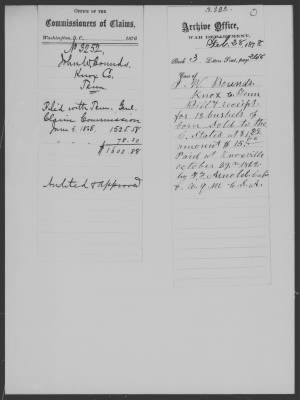 OFFICE OF THE
Commissioners of Claims,
Washington, D.C., 187
No 3252
John W Bounds
Knox Co.
Tenn
Filed with Tenn.
Claims Commission
June 6, 1878. 1525.18
78.20
$1603.38
Audited & approved
Archive Office,
WAR DEPARTMENT,
Feb. 28, 1878
Book 3. Letters Sent, page
Case of
J. W. Bounds
Knox Co Tenn
Bill & receipt
for 12 bushels of
corn sold to the
C. States at
amount $ 15
Paid at Knoxville
October 29th 1862
by F. Arnold Capt
& A.Q.M. C.S.A.